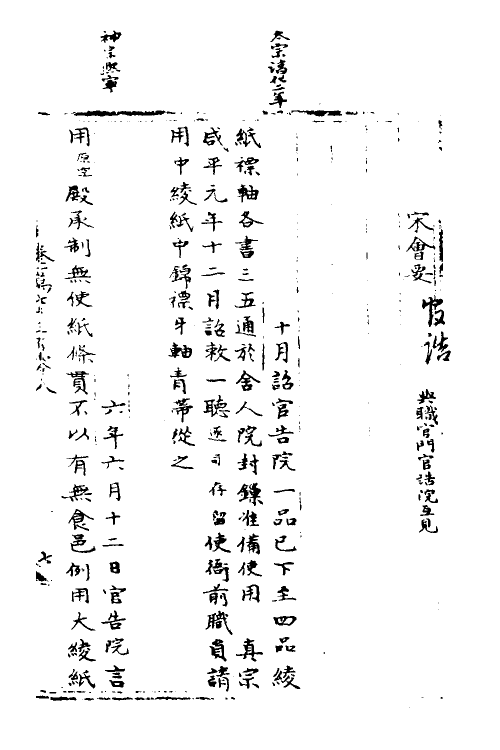 宋會要
官誥
與職官門官誥院互見
太宗淳化二年
十月詔官告院一品已下至四品綾
紙褾軸各書三五通於舍人院封鏁准備使用 真宗
咸平元年十二月詔敕一聽逐司存留使衙前職員請
用中綾紙中錦褾牙軸青帶從之
神宗熙寧
六年六月十二日官告院言
用原空殿承制無使紙條貫不以有無食邑例用大綾紙
七